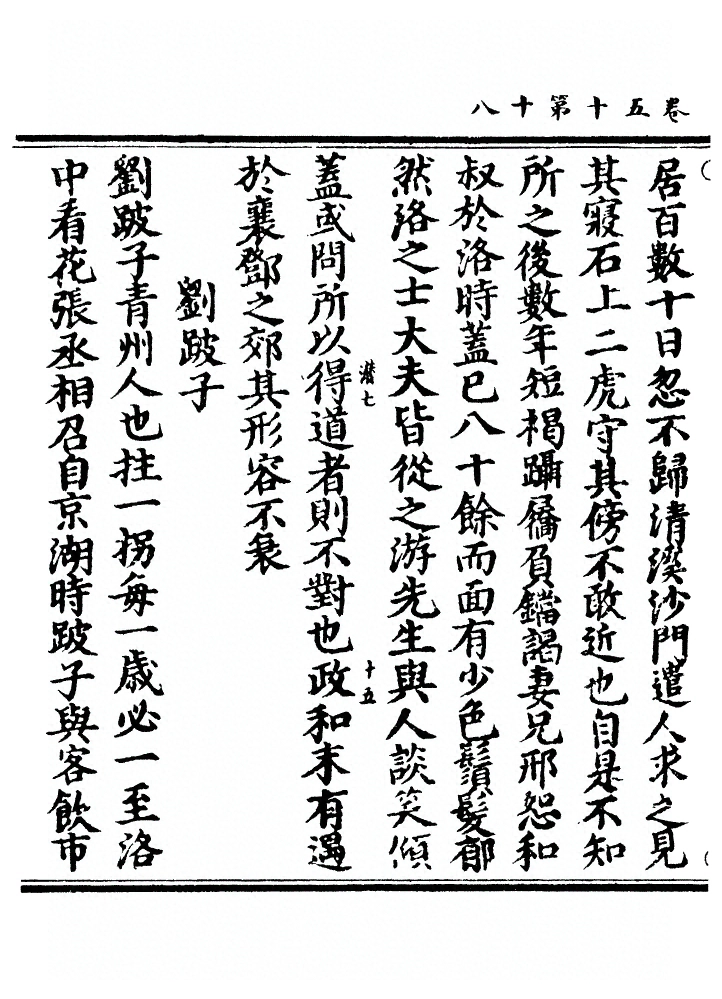 卷五十第十八
居百數十日忽不歸清溪沙門遣人求之見
其寢石上二虎守其傍不敢近也自是不知
所之後數年短褐躡屩負鐺謁妻兄邢恕和
叔於洛時蓋已八十餘而面有少色鬚髮郁
然洛之士大夫皆從之游先生與人談笑傾
潜七
十五
蓋或問所以得道者則不對也政和末有遇
於襄鄧之郊其形容不衰
劉跛子
劉跛子青州人也拄一拐每一歲必一至洛
中看花張丞相召自京湖時跛子與客飲市